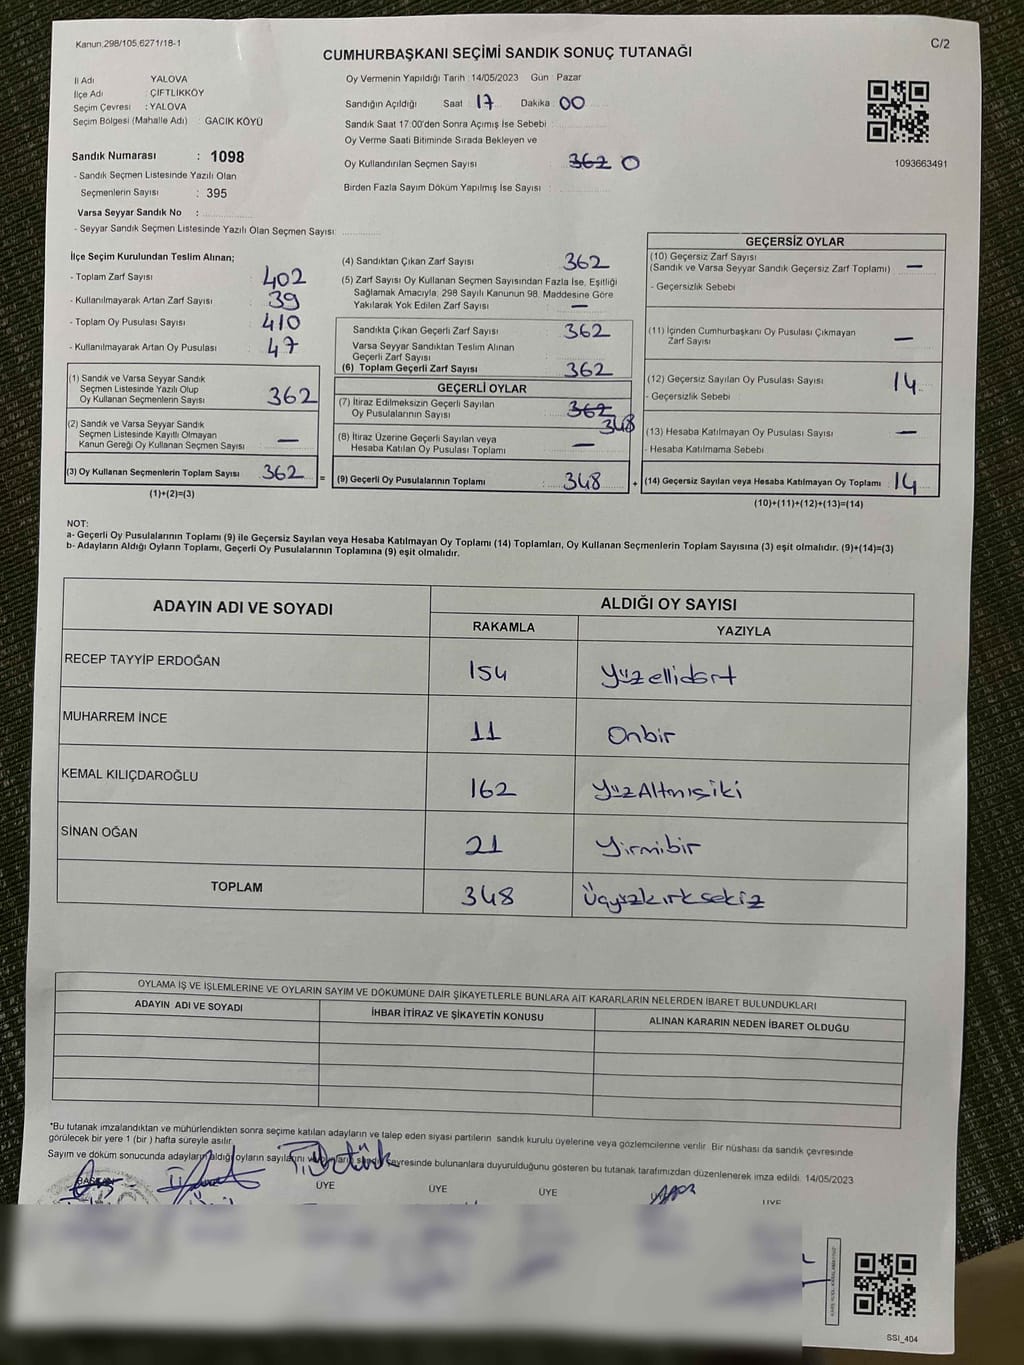 Kanun:298/105,6271/18-1
C/2
CUMHURBAŞKANI SEÇİMİ SANDIK SONUÇ TUTANAĞI
İl Adı YALOVA
İlçe Adı : ÇİFTLİKKÖY
Seçim Çevresi : YALOVA
Seçim Bölgesi (Mahalle Adı) : GACIK KÖYÜ
Sandık Numarası : 1098
- Sandık Seçmen Listesinde Yazılı Olan
Seçmenlerin Sayısı : 395
Varsa Seyyar Sandık No :
- Seyyar Sandık Seçmen Listesinde Yazılı Olan Seçmen Sayısı:
Oy Vermenin Yapıldığı Tarih :14/05/2023 Gün : Pazar
Sandığın Açıldığı Saat : 17 Dakika : 00
Sandık Saat 17:00'den Sonra Açımış İse Sebebi :
Oy Verme Saati Bitiminde Sırada Bekleyen ve
Oy Kullandırılan Seçmen Sayısı : 362 0
Birden Fazla Sayım Döküm Yapılmış İse Sayısı :
1093663491
İlçe Seçim Kurulundan Teslim Alınan;
- Toplam Zarf Sayısı : 402
- Kullanılmayarak Artan Zarf Sayısı : 39
- Toplam Oy Pusulası Sayısı : 410
- Kullanılmayarak Artan Oy Pusulası : 47
(1) Sandık ve Varsa Seyyar Sandık
Seçmen Listesinde Yazılı Olup
Oy Kullanan Seçmenlerin Sayısı : 362
(2) Sandık ve Varsa Seyyar Sandık
Seçmen Listesinde Kayıtlı Olmayan
Kanun Gereği Oy Kullanan Seçmen Sayısı : —
(3) Oy Kullanan Seçmenlerin Toplam Sayısı : 362
(1)+(2)=(3)
(4) Sandıktan Çıkan Zarf Sayısı : 362
(5) Zarf Sayısı Oy Kullanan Seçmen Sayısından Fazla İse, Eşitliği
Sağlamak Amacıyla, 298 Sayılı Kanunun 98. Maddesine Göre
Yakılarak Yok Edilen Zarf Sayısı : —
Sandıkta Çıkan Geçerli Zarf Sayısı : 362
Varsa Seyyar Sandıktan Teslim Alınan
Geçerli Zarf Sayısı :
(6) Toplam Geçerli Zarf Sayısı : 362
GEÇERLİ OYLAR
(7) İtiraz Edilmeksizin Geçerli Sayılan
Oy Pusulalarının Sayısı : 362 348
(8) İtiraz Üzerine Geçerli Sayılan veya
Hesaba Katılan Oy Pusulası Toplamı : —
= (9) Geçerli Oy Pusulalarının Toplamı : 348
GEÇERSİZ OYLAR
(10) Geçersiz Zarf Sayısı
(Sandık ve Varsa Seyyar Sandık Geçersiz Zarf Toplamı) : —
- Geçersizlik Sebebi
(11) İçinden Cumhurbaşkanı Oy Pusulası Çıkmayan
Zarf Sayısı : —
(12) Geçersiz Sayılan Oy Pusulası Sayısı : 14
- Geçersizlik Sebebi
(13) Hesaba Katılmayan Oy Pusulası Sayısı : —
- Hesaba Katılmama Sebebi
+ (14) Geçersiz Sayılan veya Hesaba Katılmayan Oy Toplamı : 14
(10)+(11)+(12)+(13)=(14)
NOT:
a- Geçerli Oy Pusulalarının Toplamı (9) ile Geçersiz Sayılan veya Hesaba Katılmayan Oy Toplamı (14) Toplamları, Oy Kullanan Seçmenlerin Toplam Sayısına (3) eşit olmalıdır. (9)+(14)=(3)
b- Adayların Aldığı Oyların Toplamı, Geçerli Oy Pusulalarının Toplamına (9) eşit olmalıdır.
ADAYIN ADI VE SOYADI
ALDIĞI OY SAYISI
RAKAMLA YAZIYLA
RECEP TAYYİP ERDOĞAN 154 Yüzellidört
MUHARREM İNCE 11 Onbir
KEMAL KILIÇDAROĞLU 162 YüzAltmışiki
SİNAN OĞAN 21 Yirmibir
TOPLAM 348 Üçyüzkırksekiz
OYLAMA İŞ VE İŞLEMLERİNE VE OYLARIN SAYIM VE DÖKÜMÜNE DAİR ŞİKAYETLERLE BUNLARA AİT KARARLARIN NELERDEN İBARET BULUNDUKLARI
ADAYIN ADI VE SOYADI İHBAR İTİRAZ VE ŞİKAYETİN KONUSU ALINAN KARARIN NEDEN İBARET OLDUĞU
*Bu tutanak imzalandıktan ve mühürlendikten sonra seçime katılan adayların ve talep eden siyasi partilerin sandık kurulu üyelerine veya gözlemcilerine verilir. Bir nüshası da sandık çevresinde
görülecek bir yere 1 (bir ) hafta süreyle asılır.
Sayım ve döküm sonucunda adayların aldığı oyların sayılarını çevresinde bulunanlara duyurulduğunu gösteren bu tutanak tarafımızdan düzenlenerek imza edildi. 14/05/2023
BAŞKAN ÜYE ÜYE ÜYE ÜYE ÜYE
SSI_404